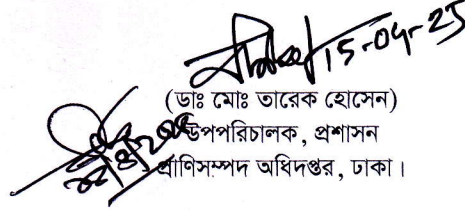 15-04-25
(ডাঃ মোঃ তারেক হোসেন)
উপপরিচালক, প্রশাসন
প্রাণিসম্পদ অধিদপ্তর, ঢাকা।